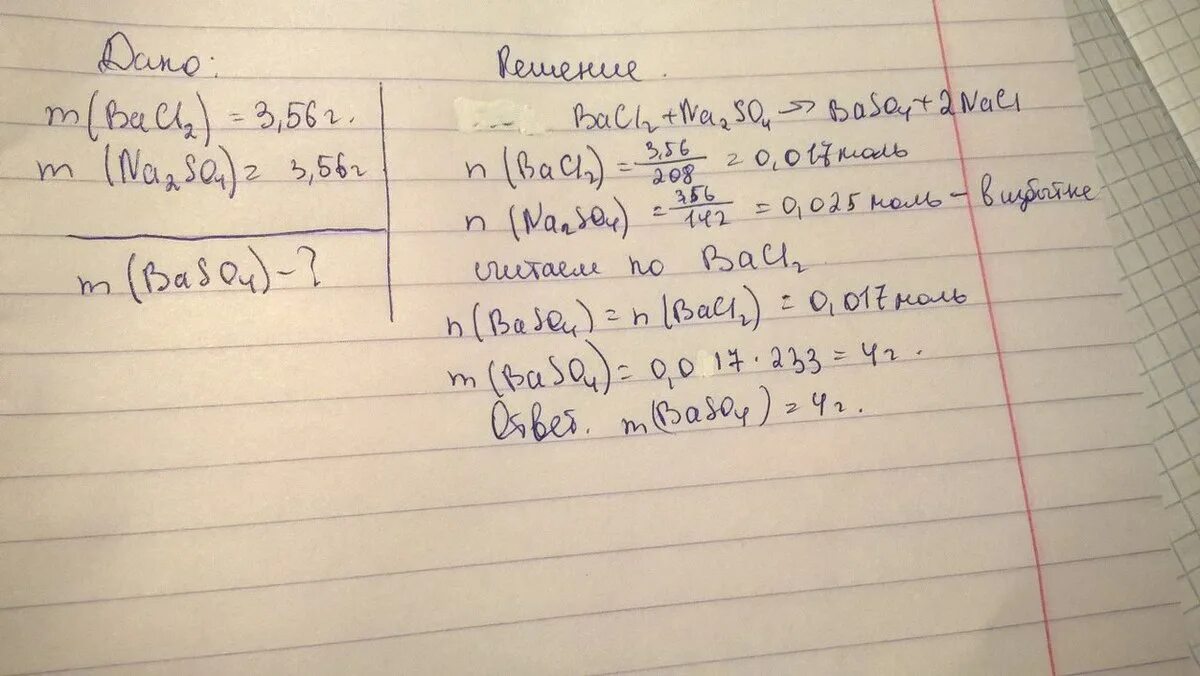 Дано:
m(BaCl₂) = 3,56 г.
m (Na₂SO₄) = 3,56 г
m(BaSO₄) - ?
Решение.
BaCl₂ + Na₂SO₄ → BaSO₄ + 2NaCl
n (BaCl₂) = 3,56/208 = 0,017 моль
n (Na₂SO₄) = 3,56/142 = 0,025 моль - в избытке
считаем по BaCl₂
n(BaSO₄) = n(BaCl₂) = 0,017 моль
m(BaSO₄) = 0,017 · 233 = 4 г.
Ответ. m(BaSO₄) = 4 г.